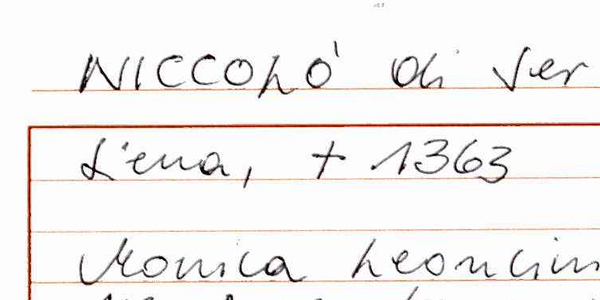 NICCOLÒ di Ser
Siena, + 1363
Monica Leoncin